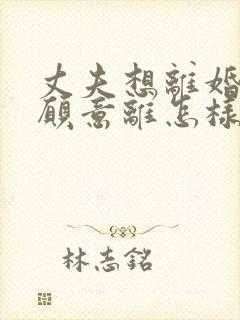 丈夫想離婚
願意離怎樣
林志銘